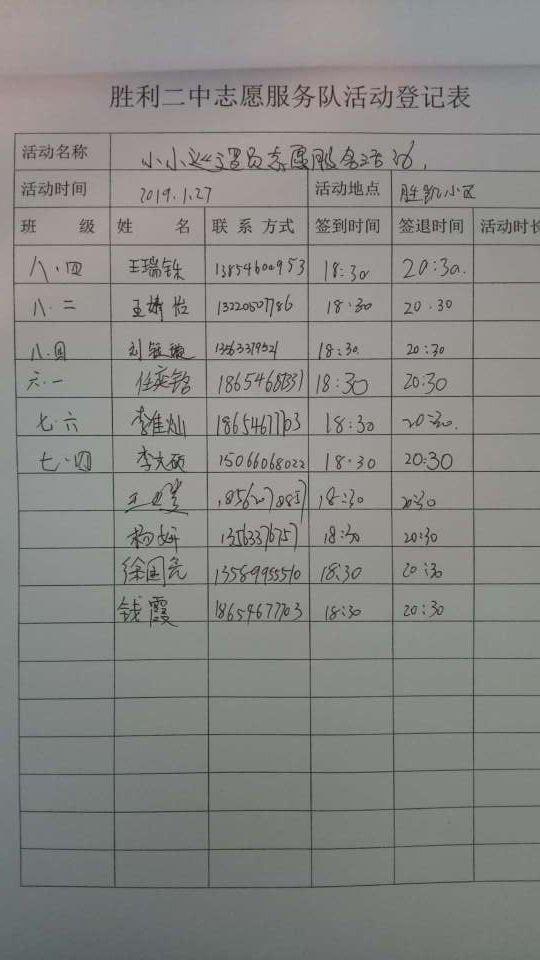 胜利二中志愿服务队活动登记表
活动名称 小小巡逻员志愿服务活动.
活动时间 2019.1.27 活动地点 胜凯小区
班 级 姓 名 联系方式 签到时间 签退时间 活动时长
八.四 王瑞铢 13854600953 18:30 20:30.
八.二 王婧怡 13220507786 18:30 20.30
八.四 18:30. 20:30
六.一 任奕铭 18:30 20:30
七.六 李佳灿 18654677703 18:30 20:30.
七.四 李文硕 15066068022 18:30 20:30
18:30 20:30
杨妍 13563376757 18:30 20:30
徐国亮 13589955510 18:30 20:30
钱霞 18654677703 18:30 20:30